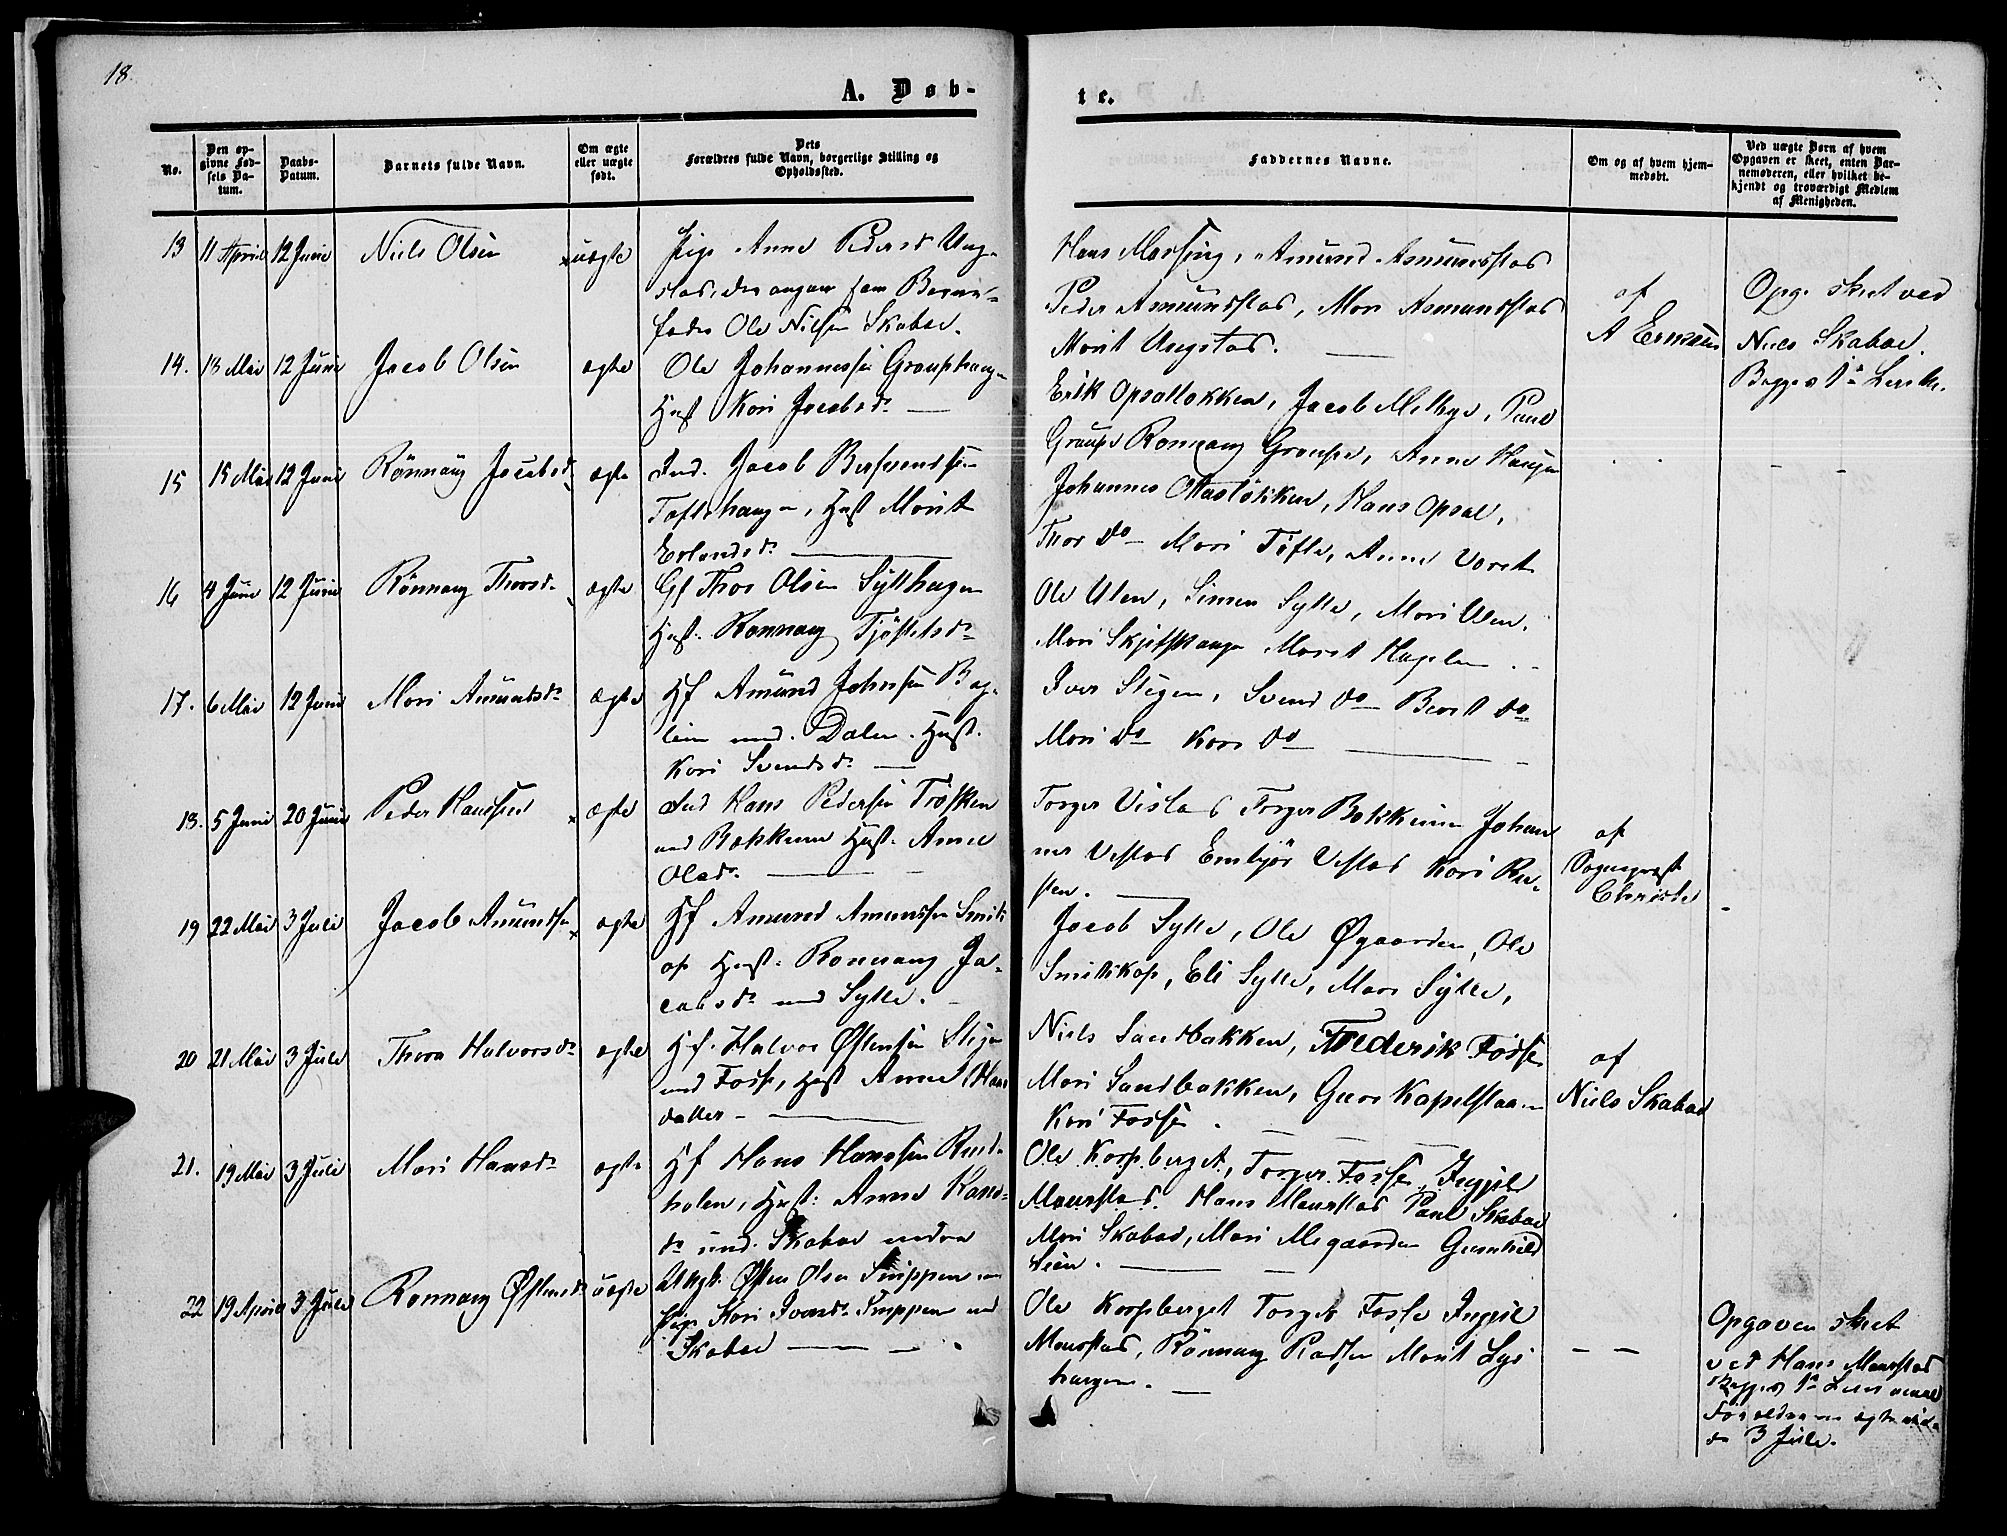 18.
A. Døb-
te.
No.
Den op-
givne Fød-
sels Da-
tum.
Daabs-
Datum.
Barnets fulde Navn.
Om ægte
eller uægte
født.
Dets
Forældres fulde Navn, borgerlige Stilling og
Opholdssted.
Faddernes Navne.
Om og af hvem hjem-
medøbt.
Ved uægte Børn af hvem
Opgaven er skeet, enten Bar-
nemoderen, eller hvilket be-
kjendt og troværdigt Medlem
af Menigheden.
13 11 April 12 Juni Niels Olsen uægte Pige Anne Pedersd Ung-
stad, der angav som Barne-
fader Ole Nilsen Skabae.
Hans Morsing, Amund Amundstad
Peder Amundstad, Mari Amundstad
Morit Ungstad.
af
A Eriksen
Opg. skeet ved
Niels Skaboe.
Begges 1ste Leierm.
14. 13 Mai 12 Juni Jacob Olsen ægte Ole Johannessen Graupehaug-
Hust Kari Jacobsdr
Erik Opsatløkken, Jacob Melbye, Paul
Graupe Rønnaug Graupe, Anne Haugen
15 15 Mai 12 Juni Rönnaug Jacobsdr ægte Ind. Jacob Berssendsen
Toftehaugen, Hust Morit
Erlandsdr
Johannes Ottasløkken, Hans Opsal,
Thor do Mari Tofte, Anne
16 4 Juni 12 Juni Rönnaug Thorsdr ægte Gf Thor Olsen Syttehagen
Hust. Rønnaug Tjøstelsdr
Ole Ulen, Simen Sytte, Mari Ulen,
Mari Morit Hagelen
17. 6 Mai 12 Juni Mari Amundsdr ægte Hf Amund Johnsen Bag-
lien und. Dalen. Hust.
Kari Svendsdr
Iver Stigen, Svend do Berit do
Mari do Kari do
18. 5 Juni 20 Juni Peder Hanssen ægte Ind Hans Pedersen Trøsken
und Bakkene Hust. Anne
Olsdr.
Torger Vistad Torger Bakkene Johan
nes Vistad Embjør Vistad Kari Ru-
sten.
af
Sognepræst
Christie
19 22 Mai 3 Juli Jacob Amundsen ægte Hf Amund Amundsen Smitsk
op Hust. Rønnaug Ja-
cobsdr und Sytte.
Jacob Sytte, Ole Øgaarden, Ole
Smitskop, Eli Sytte, Mari Sytte,
20 21 Mai 3 Juli Thora Halvorsdr ægte Hf. Halvor Østensen Stigen
und Fosse, Hust Anne Hans
datter
Niels Sandbakken, Frederik Fosse
Mari Sandbakken, Guro Kapelstaden
Kari Fosse
af
Niels Skaboe
21. 19 Mai 3 Juli Mari Hansdr ægte Hf Hans Hanssen Rund-
holen, Hust: Anne Hans-
dr und. Skaboe nedre
Ole Korpberget, Torger Fosse, Ingjel
Maurstad. Hans Maurstad Paul Skaboe
Mari Skaboe, Mari Megaarden Gunhild
Sien.
22 19 April 3 Juli Rønnaug Østensdr uægte Ungk. Østen Olsen Snippen og
Pige Kari Iversdr Snippen und
Skaboe
Ole Korpberget Torger Fosse Ingjel
Maurstad, Rönnaug Morit Lys
haugen.
Opgaven skeet
ved Hans Maurstad
Begges 1ste Leiermaal
Forældrene ægteviede
d. 3 Juli.